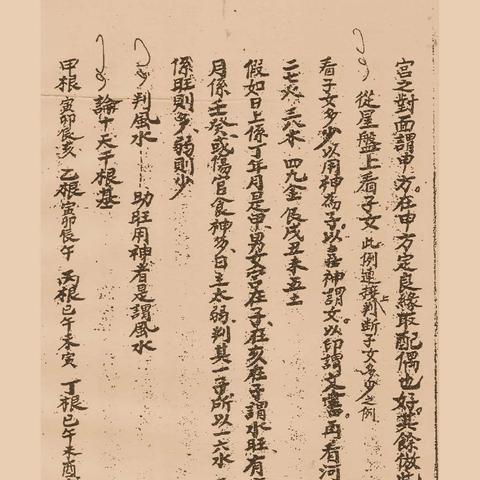 宮之對面謂申方。在申方定良緣取配偶也好。其餘倣此
從星盤上看子女 此例連接上判斷子女多少之例
看子女多少以用神為子。以喜神謂女。以印謂文書。再看河
二七火 三八木 四九金 辰戌丑未五土
假如日上係丁年月是甲、男女宮在子、在亥在子謂水旺、有
月係壬癸、或傷官食神多日主太弱、判其一子所以一六水
係旺則多、弱則少
判風水 助旺用神者是謂風水
論十天干根基
甲根 寅卯辰亥 乙根 寅卯辰午 丙根 巳午未寅 丁根 巳午未酉